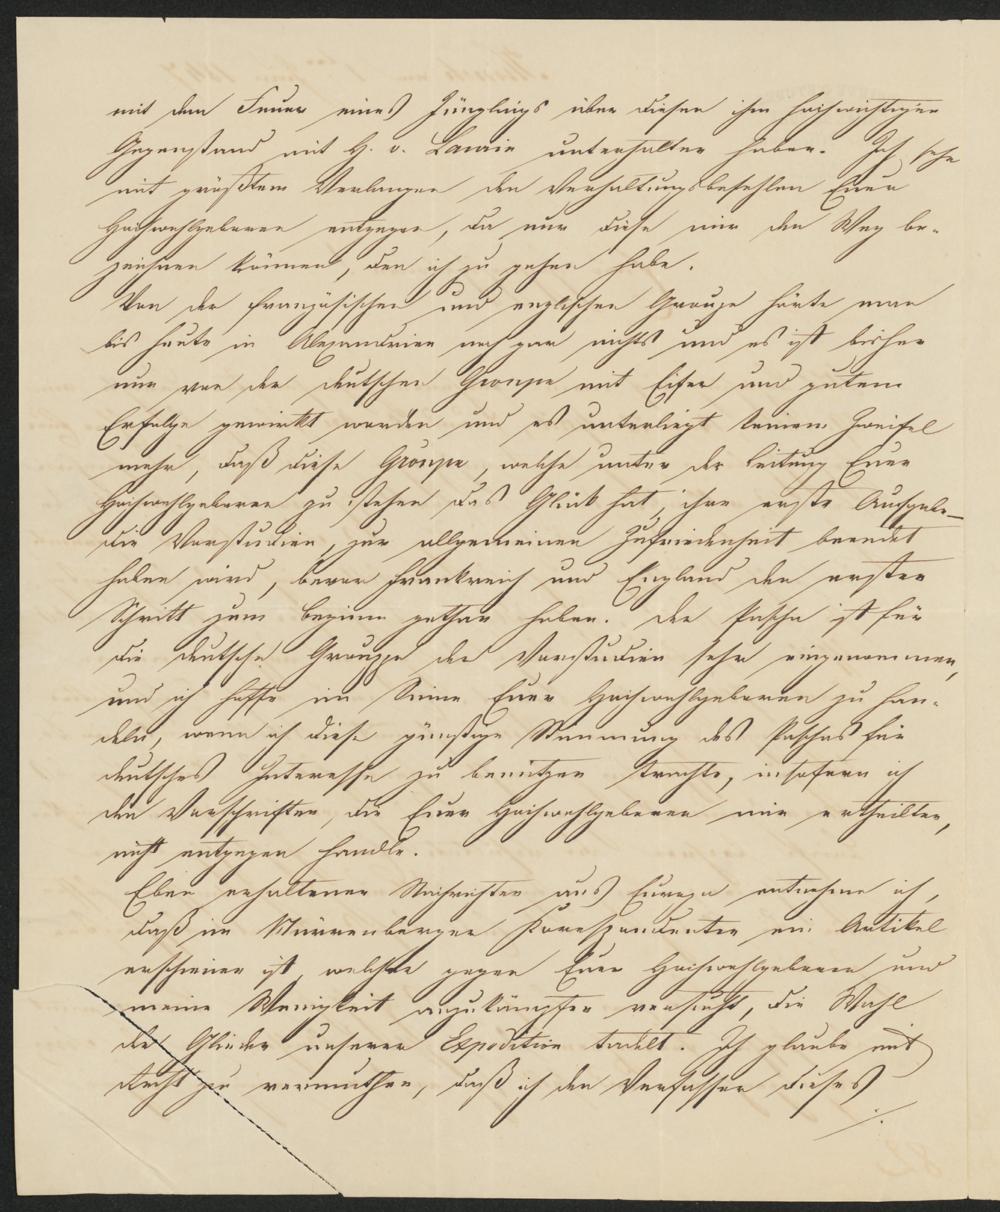 mit dem Feuer eines Jünglings über diesen ihm hochwichtigen
Gegenstand mit H. v. Laurin unterhalten haben. Ich sehe
mit größtem Verlangen den Verhaltungsbefehlen Euer
Hochwohlgeboren entgegen, da nur diese mir den Weg be-
zeichnen können, den ich zu gehen habe.
Von der französischen und englischen Grouppe hörte man
bis heute in Alexandrien noch gar nichts und es ist bisher
nur von der deutschen Grouppe mit Eifer und gutem
Erfolge gewirkt worden und es unterliegt keinem Zweifel
mehr, daß diese Grouppe, welche unter der Leitung Euer
Hochwohlgeboren zu stehen das Glück hat, ihre erste Aufgabe
die Vorstudien, zur allgemeinen Zufriedenheit beendet
haben wird, bevor Frankreich und England den ersten
Schritt zum Beginne gethan haben. Der Pascha ist für
die deutsche Grouppe der Vorstudien sehr eingenommen,
und ich hoffe im Sinne Euer Hochwohlgeboren zu han-
deln, wenn ich diese günstige Stimmung des Paschas für
deutsches Interesse zu benützen trachte, insofern ich
den Vorschriften, die Euer Hochwohlgeboren mir ertheilten,
nicht entgegen handle.
Eben erhaltenen Nachrichten aus Europa entnehme ich,
daß im Nürrenberger Korespondenten ein Artikel
erschienen ist, welcher gegen Euer Hochwohlgeboren und
meine Wenigkeit anzukämpfen versucht, die Wahl
der Glieder unserer Expedition tadelt. Ich glaube mit
Recht zu vermuthen, daß ich den Verfasser dieses
./.